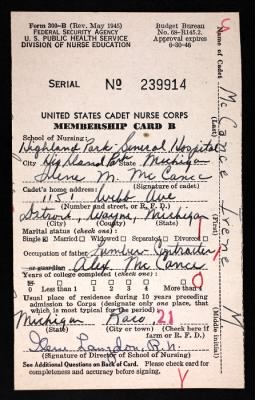 Form 300-B (Rev. May 1945)
FEDERAL SECURITY AGENCY
U. S. PUBLIC HEALTH SERVICE
DIVISION OF NURSE EDUCATION
Budget Bureau
No. 68-R145.2.
Approval expires
6-30-46
SERIAL No 239914
UNITED STATES CADET NURSE CORPS
MEMBERSHIP CARD B
School of Nursing:
Highland Park General Hospital
City Highland Park State Michigan
Irene M. McCance
(Signature of cadet)
Cadet's home address:
1151 Webb Ave
(Number and street, or R. F. D.)
Detroit, Wayne, Michigan
Marital status (check one):
Single Married Widowed Separated Divorced
Occupation of father Lumber Contractor
or guardian Alex McCance
Years of college completed (check one):
0 Less than 1 1 2 3 4
Usual place of residence during 10 years preceding
admission to Corps (designate only one place, that
which is most typical for the period)
Michigan Raco 21
(State) (City or town) (Check here if
farm or R. F. D.)
Langdon, R.N.
(Signature of Director of School of Nursing)
See Additional Questions on Back of Card. Please check for
completeness and accuracy before signing.
Name of Cadet McCance Irene M
(Last) (First) (Middle initial)